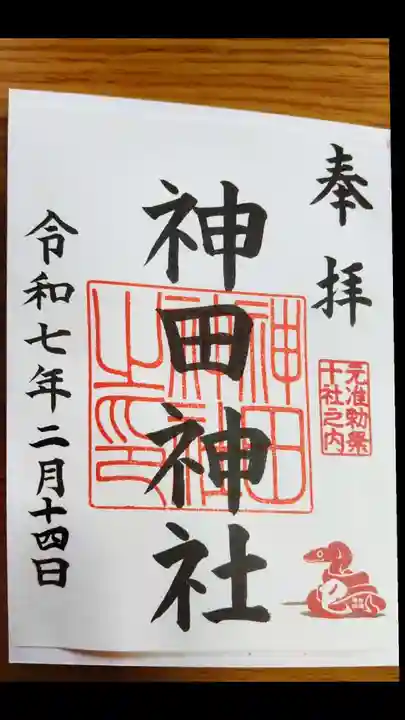 奉拝
元准勅祭
十社之内
神田神社
神田
神社
之印
令和七年二月十四日